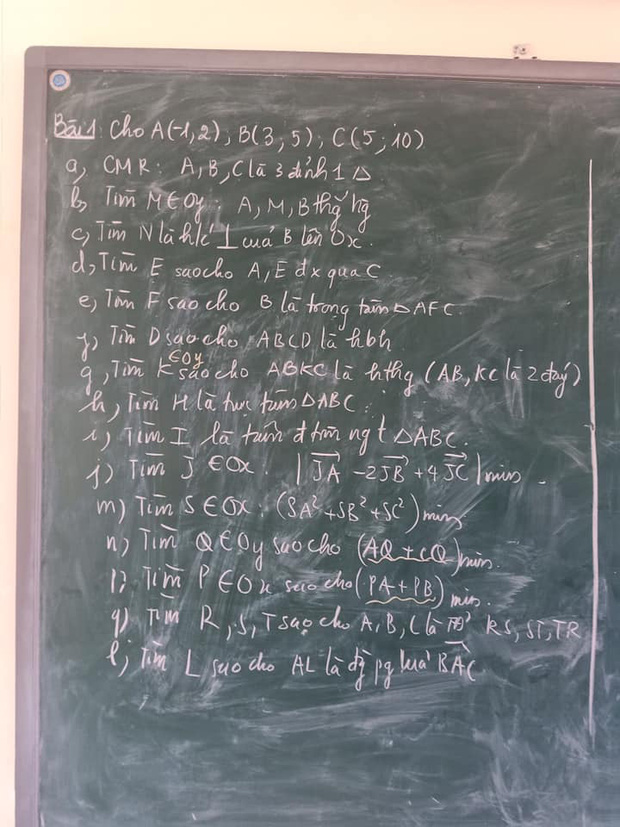 Bài 1: Cho A(-1,2), B(3,5), C(5;10)
a, CMR: A, B, C là 3 đỉnh 1 Δ
b, Tìm M∈Oy: A, M, B thg hg
c, Tìm N là h/c ⊥ của B lên Ox.
d, Tìm E sao cho A, E đx qua C
e, Tìm F sao cho B là trọng tâm ΔAFC.
f, Tìm D sao cho ABCD là hbh
g, Tìm K∈Oy sao cho ABKC là hthg (AB, KC là 2 đáy)
h, Tìm H là trực tâm ΔABC.
i, Tìm I là tâm đ tròn ng t ΔABC.
j) Tìm J ∈Ox: |JA - 2JB + 4JC| min
m) Tìm S∈Ox: (SA² + SB² + SC²) min
n) Tìm Q∈Oy sao cho (AQ + CQ) min.
p) Tìm P∈Ox sao cho (PA + PB) min.
q) Tìm R, S, T sao cho A, B, C là RS, ST, TR
l, Tìm L sao cho AL là pg BAC